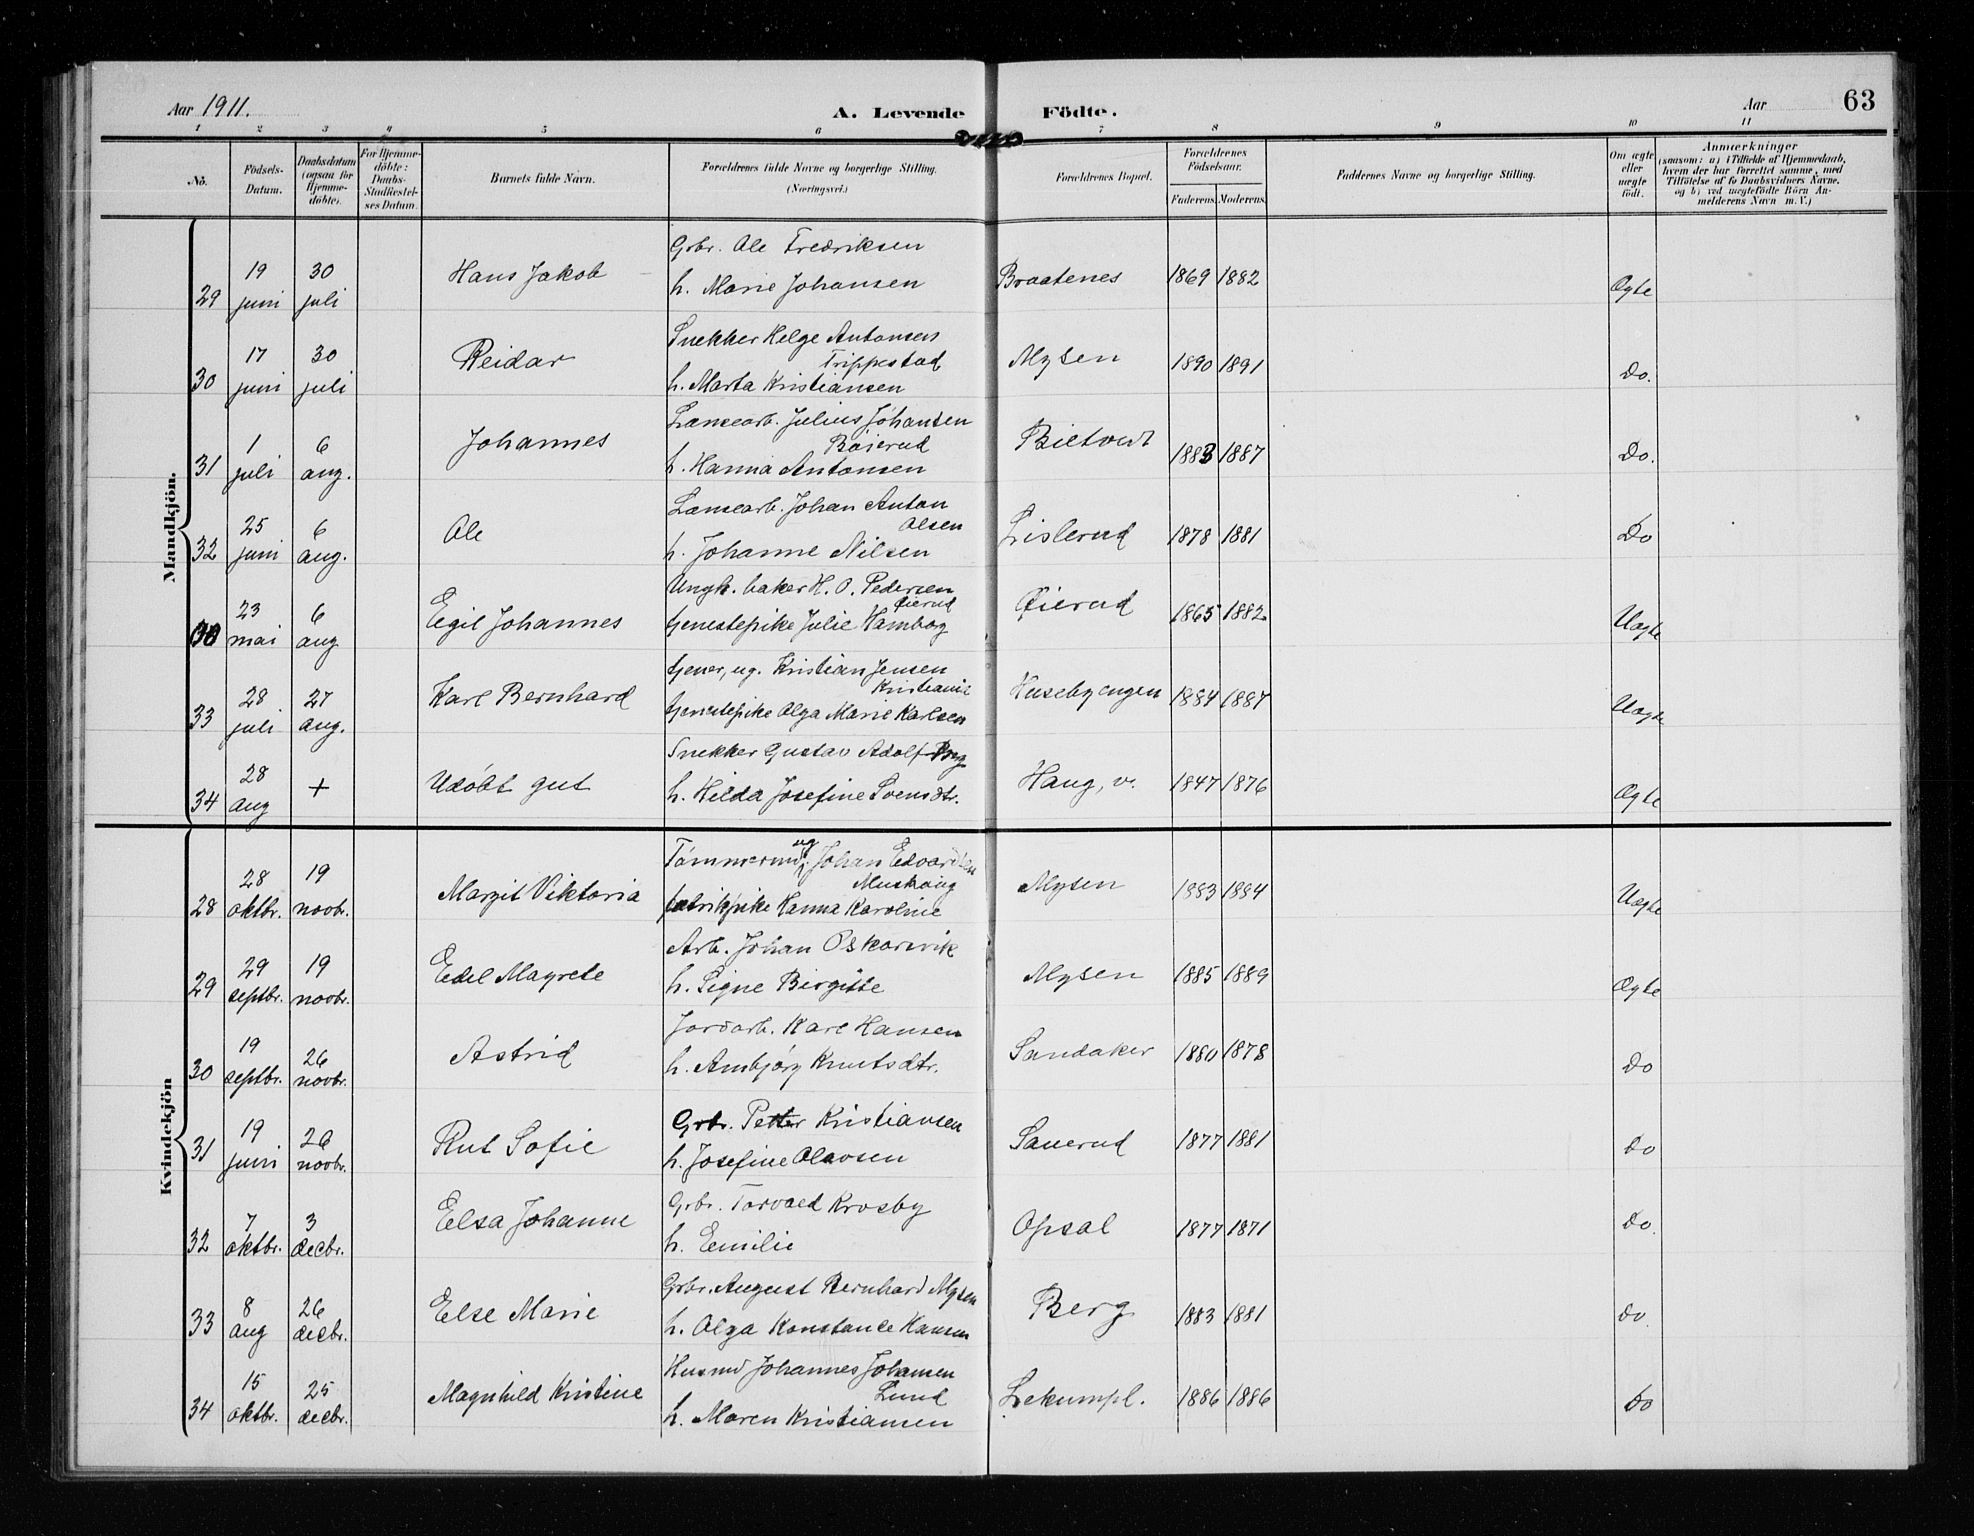 Aar 1911. A. Levende Födte. Aar 63
1 2 3 4 5 6 7 8 9 10 11
No. Födsels-Datum. Daabsdatum (ogsaa for Hjemme-döbte). For Hjemme-döbte: Daabs-Stadfæstel-ses Datum. Barnets fulde Navn. Forældrenes fulde Navne og borgerlige Stilling. (Næringsvei.) Forældrenes Bopæl. Forældrenes Födselsaar. Faderens. Moderens. Faddernes Navne og borgerlige Stilling. Om ægte eller uægte födt. Anmærkninger (saasom: a) i Tilfælde af Hjemmedaab, hvem der har forrettet samme, med Tilföielse af to Daabsvidners Navne, og b) ved uægtefödte Börn An-melderens Navn m. V.)
Mandkjön.
Grbr. Ole Fredriksen
29 19 juni 30 juli Hans Jakob h. Marie Johansen Braatenes 1869 1882 Ægte
Snekker Helge Antonsen
Trippestad
30 17 juni 30 juli Reidar h. Marta Kristiansen Mysen 1890 1891 Do.
Lænsearb. Julius Johansen
31 1 juli 6 aug. Johannes h. Hanna Antonsen 1883 1887 Do.
Lænsearb. Johan Anton
Olsen
32 25 juni 6 aug. Ole h. Johanne Nilsen Lislerud 1878 1881 Do
Ungk. baker H. O. Pedersen
Øierud
23 mai 6 aug Egil Johannes tjenestepike Julie Hambog Øierud 1865 1882 Uægte
tjener, ug. Kristian Jensen
Kristiania
33 28 juli 27 aug. Karl Bernhard tjenestepike Olga Marie Karlsen Husebyengen 1884 1887 Uægte
Snekker Gustav Adolf
34 28 aug + Udöbt gut h. Hilda Josefine Svensdtr. Haug, v. 1847 1876 Ægte
Kvindekjön
Tømmermd. ug Johan Edvardsen
28 28 oktbr. 19 novbr. Margit Viktoria fabrikpike Hanna Karoline Mysen 1883 1884 Uægte
Arb. Johan Oskarsvik
29 29 septbr. 19 novbr. Edel Magrete h. Signe Birgitte Mysen 1885 1889 Ægte
Jordarb. Karl Hansen
30 19 septbr. 26 novbr. Astrid h. Ambjørg Knutsdtr. Sandaker 1880 1878 Do
Grbr. Petter Kristiansen
31 19 juni 26 novbr. Rut Sofie h. Josefine Olavsen Sauerud 1877 1881 Do
Grbr. Torvald Krosby
32 7 oktbr. 3 decbr. Elsa Johanne h. Emilie Opsal 1877 1871 Do.
Grbr. August Bernhard Mysen
33 8 aug 26 decbr. Else Marie h. Olga Konstance Hansen Berg 1883 1881 Do.
Husmd Johannes Johansen
Lund
34 15 oktbr. 25 decbr. Magnhild Kristine h. Maren Kristiansen Lekumpl. 1886 1886 Do